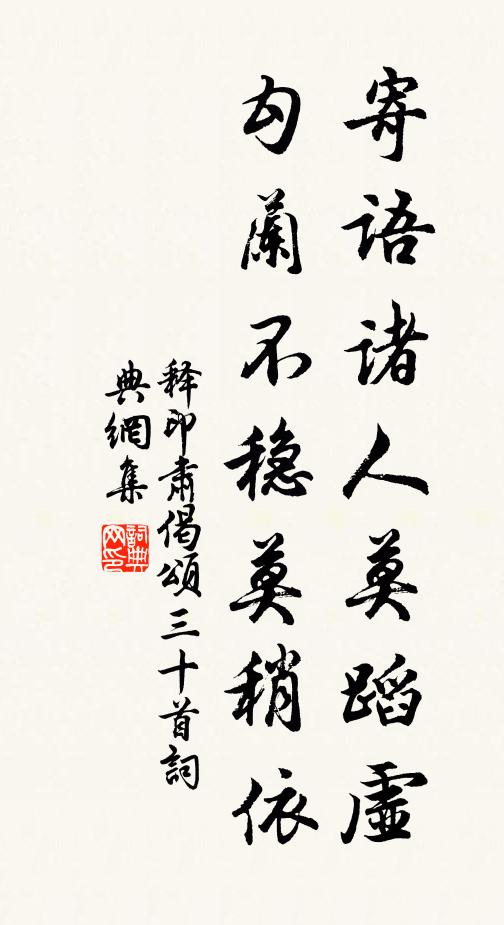 寄语诸人莫蹈虚
勾蘭不稳莫稍依
释印肃偈頌三十首詞
典網集
詞典网印